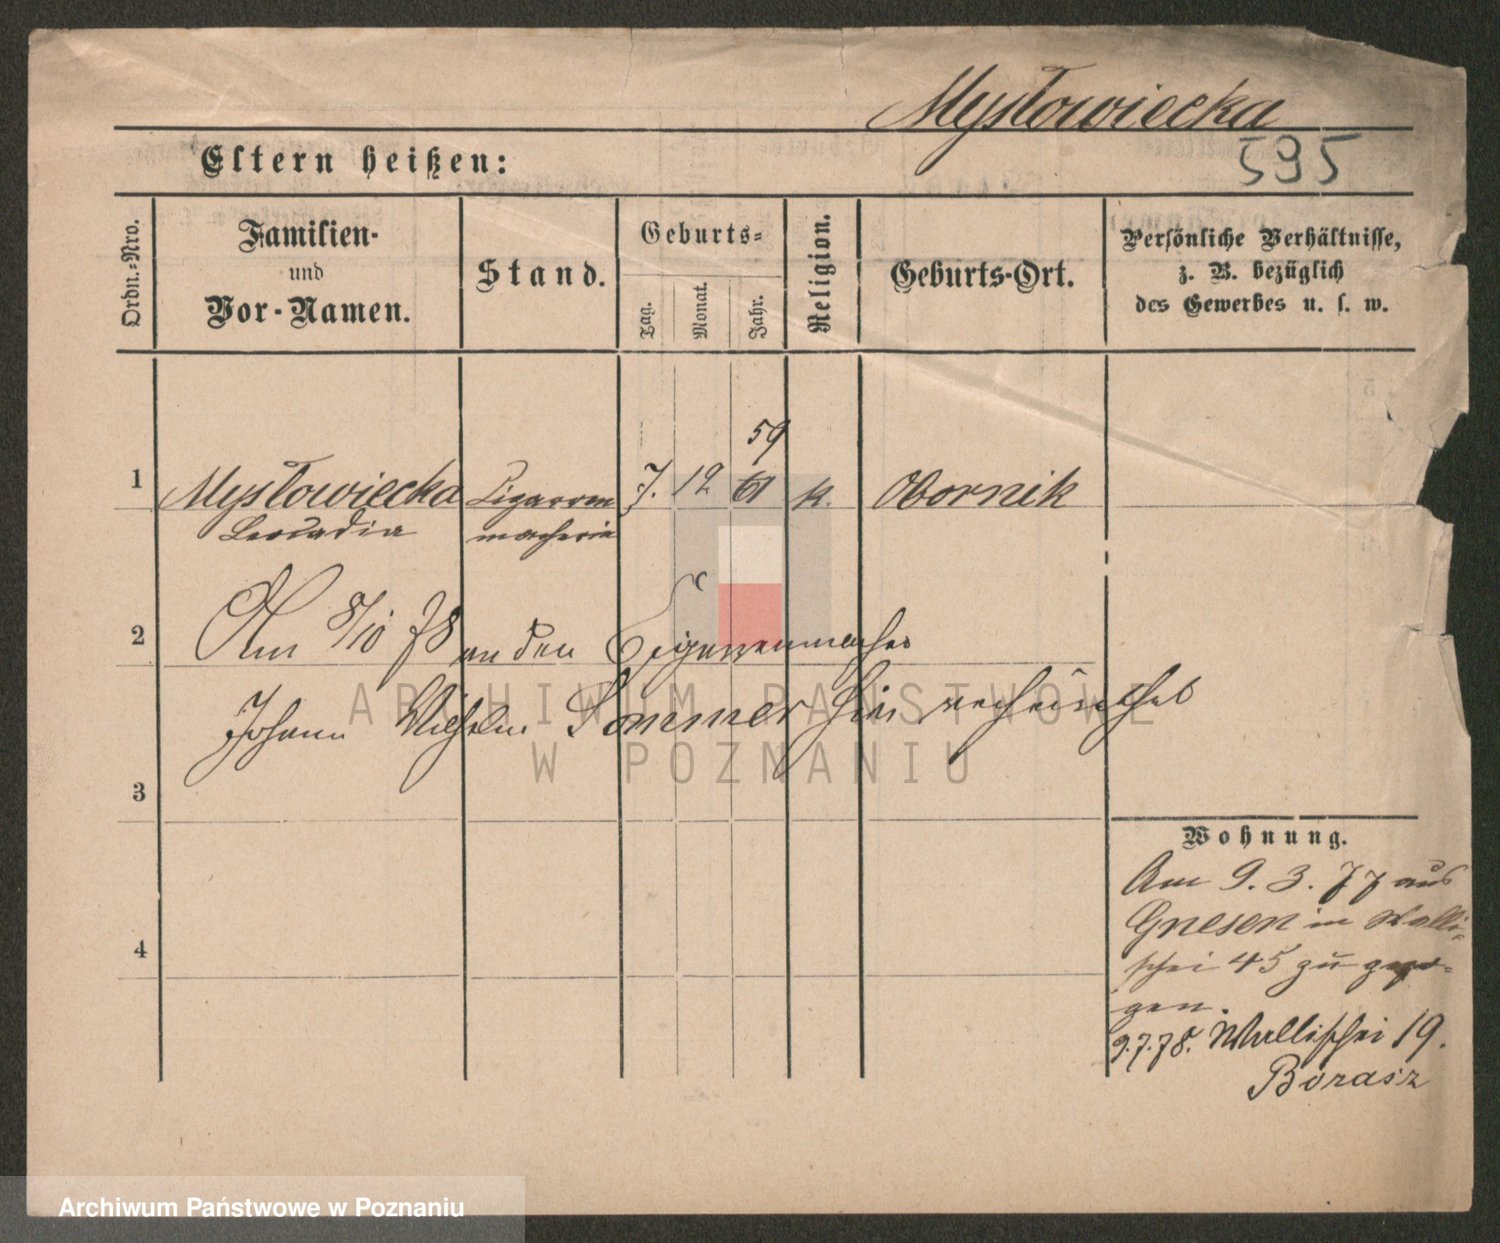 Mysłowiecka
595
Eltern heißen:
Ordn.-Nro.
Familien-
und
Vor-Namen.
Stand.
Geburts-
Tag.
Monat.
Jahr.
Religion.
Geburts-Ort.
Persönliche Verhältnisse,
z. B. bezüglich
des Gewerbes u. s. w.
59
1 Mysłowiecka Cigarren 7. 12 61 k. Obornik
Leocadia macherin
2 Am 8/10 78 an den Cigarrenmacher
Johann Wilhelm Sommer hier verheirathet
3
4
Wohnung.
Am 9. 3. 77 aus
Gnesen in Walli-
schei 45 zu gezo-
gen.
9.7.78. Wallischei 19.
Borasz
ARCHIWUM PAŃSTWOWE
W POZNANIU
Archiwum Państwowe w Poznaniu